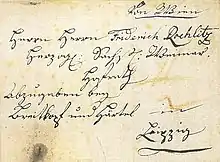 Von Wien
Herrn Herrn Friederich Rochlitz
Herzogl. Sachs. Weimar.
Hofrath
abzugeben bey
Breitkopf und Härtel in
Leipzig